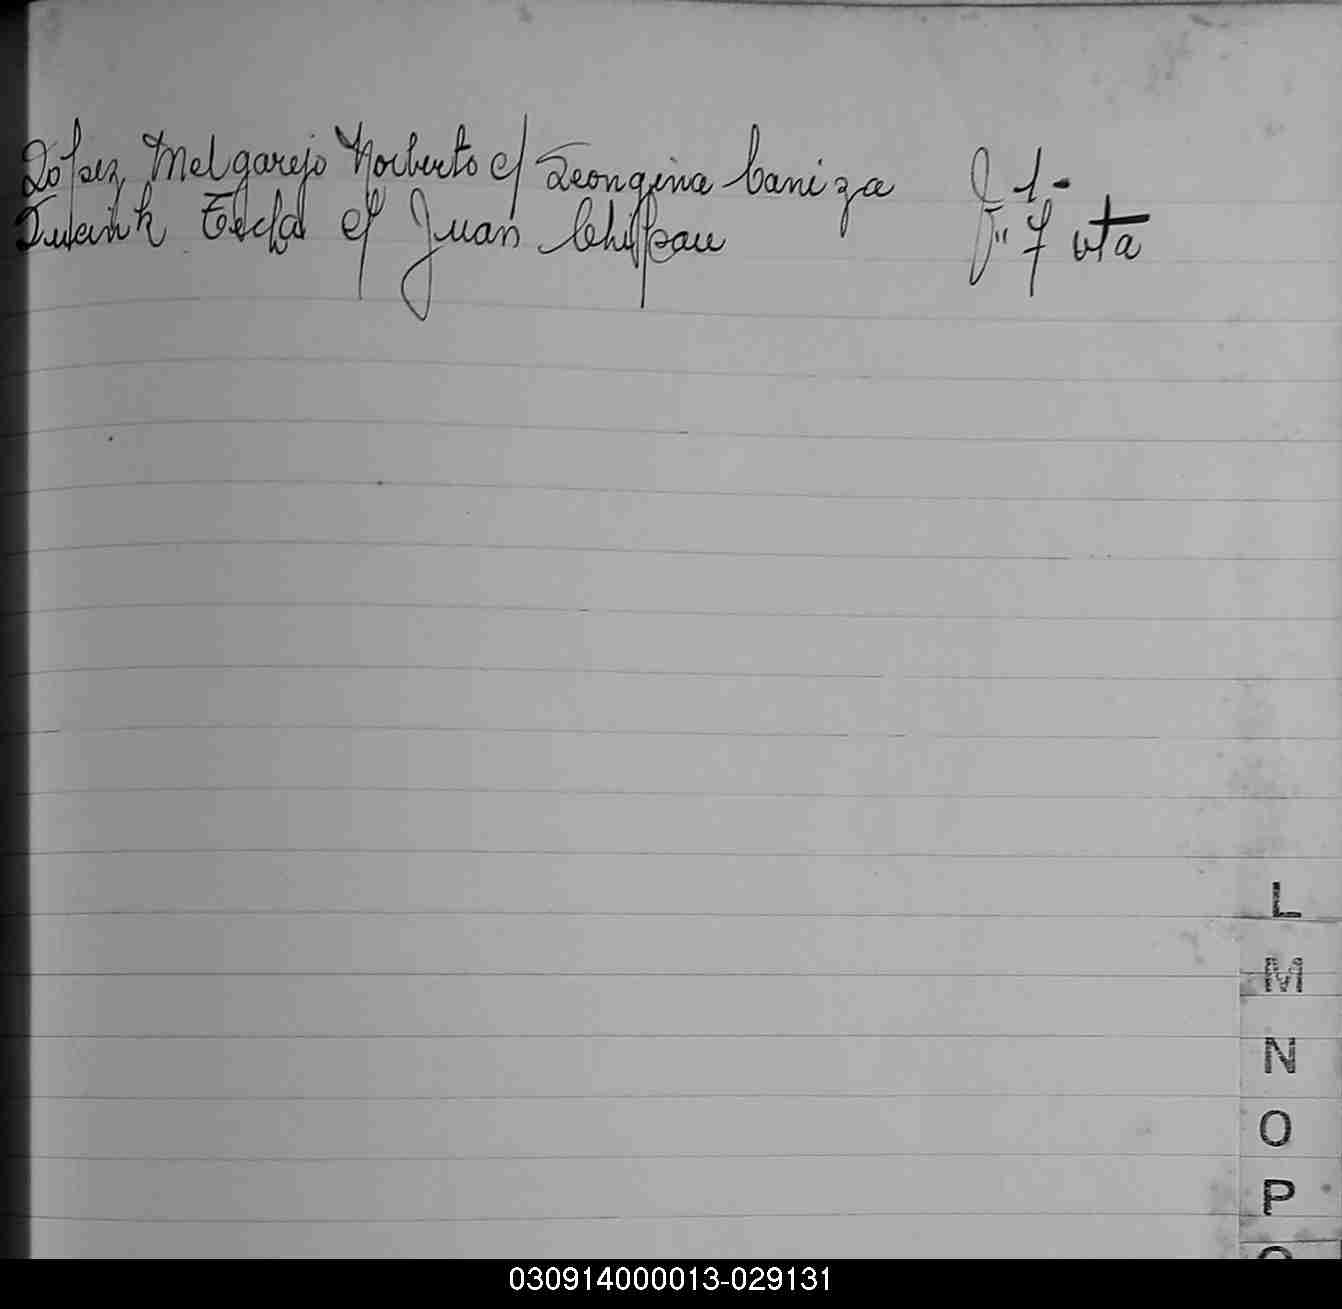 López Melgarejo Norberto c/ Leongina Caniza F. 1-
Tecla c/ Juan F." 7 vta
L
M
N
O
P
030914000013-029131